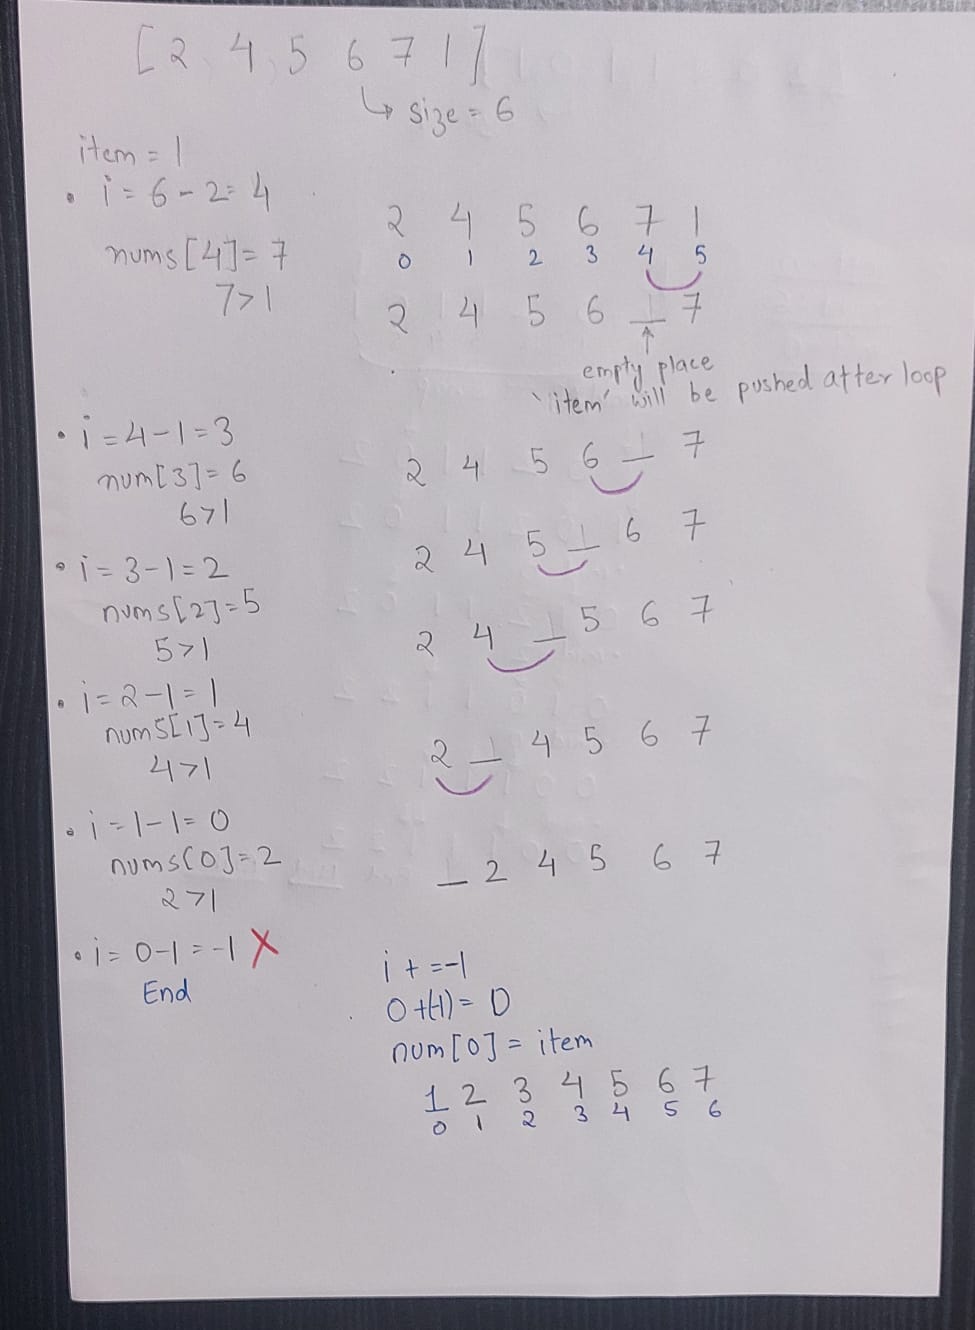 [2, 4, 5 6 7 1]
↳ size = 6
item = 1
• i = 6 - 2 = 4
nums[4] = 7
7>1
2 4 5 6 7 1
0 1 2 3 4 5
2 4 5 6 _ 7
↑
empty place
'item' will be pushed after loop
• i = 4-1 = 3
num[3] = 6
6>1
2 4 5 6 _ 7
• i = 3-1 = 2
nums[2] = 5
5>1
2 4 5 _ 6 7
2 4 _ 5 6 7
• i = 2-1 = 1
nums[1] = 4
4>1
2 _ 4 5 6 7
• i = 1-1 = 0
nums[0] = 2
2>1
_ 2 4 5 6 7
• i = 0-1 = -1 X
End
i + = -1
0 + (-1) = 0
num[0] = item
1 2 3 4 5 6 7
0 1 2 3 4 5 6